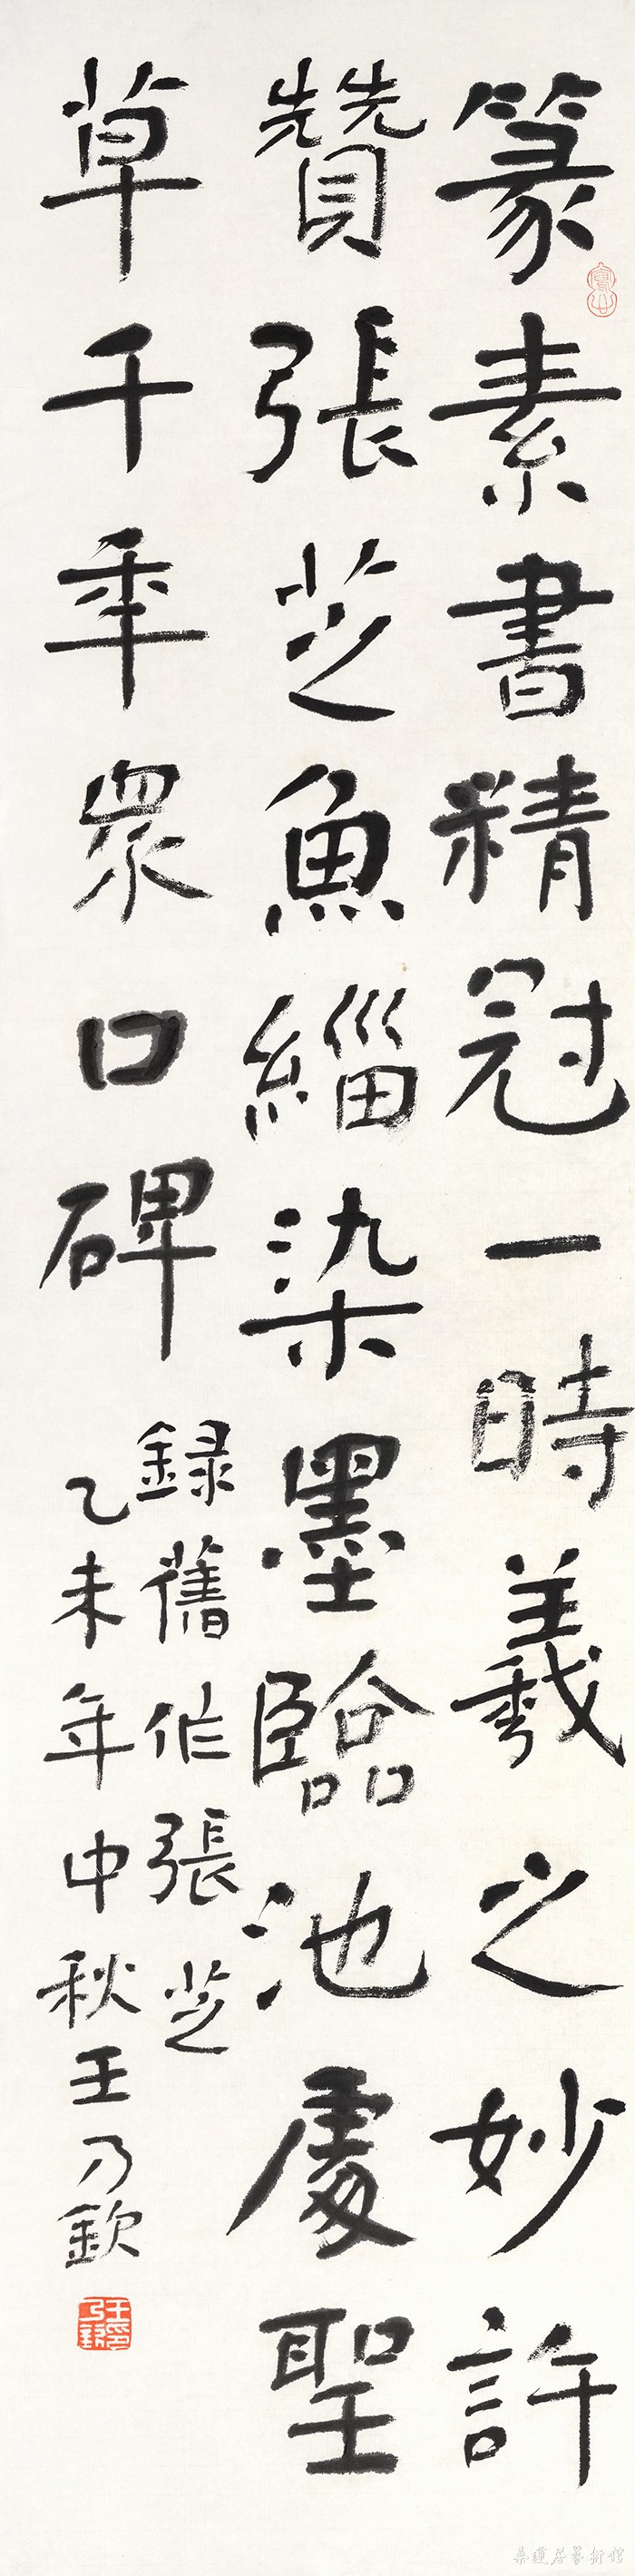 篆素書精冠一時羲之妙許
贊張芝魚緇染墨臨池處聖
草千年眾口碑
錄舊作張芝
乙未年中秋王乃欽